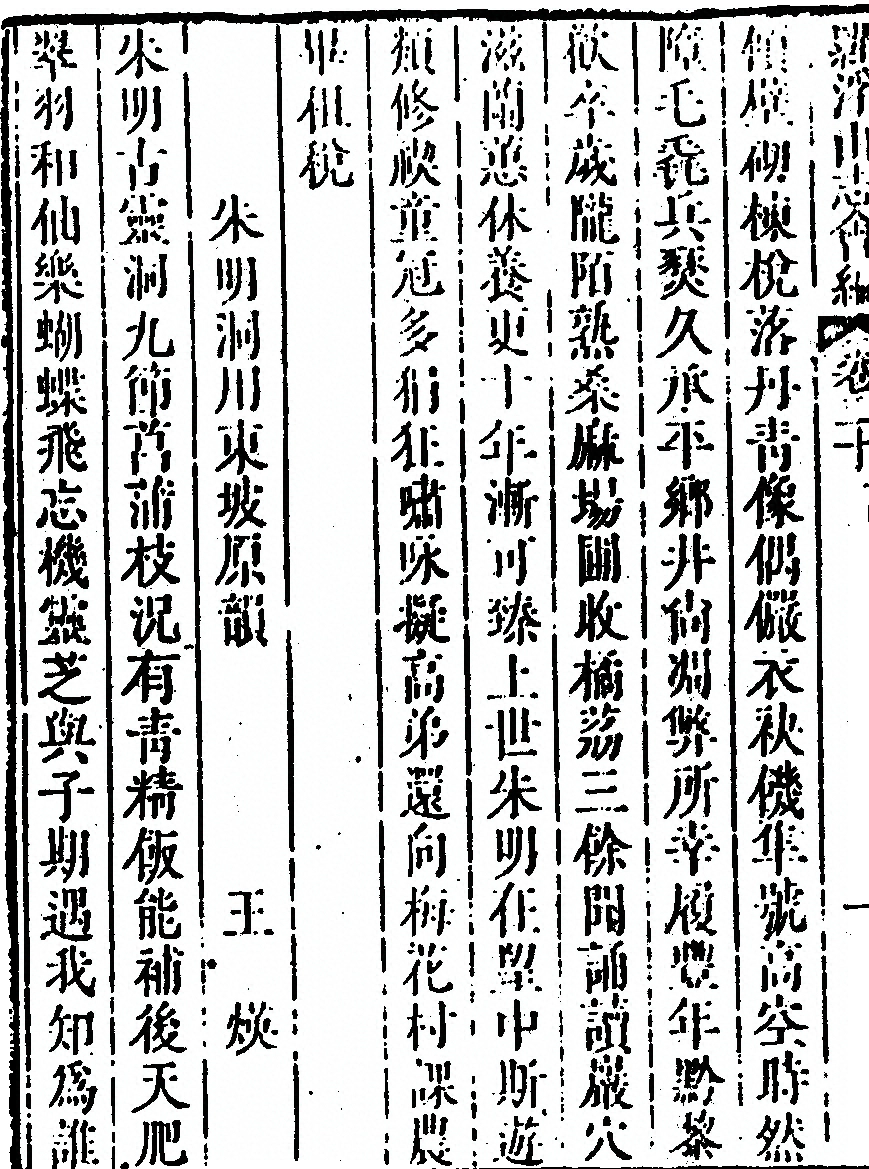 羅浮山志會編 卷二十 一
傾壁砌棟梲落丹青像偶儼衣袂儀隼號高空時然
障毛毳兵燹久承平鄉井尚凋弊所幸履豐年黔黎
歡卒歲隴陌熟桑麻場圃收橘荔三餘閒誦讀巖穴
滋蘭蕙休養更十年漸可臻上世朱明在望中斯遊
類修禊童冠多狷狂嘯咏擬高弟還向梅花村課農
畢租稅
朱明洞用東坡原韻 王煐
朱明古靈洞九節菖蒲枝況有青精飯能補後天肥
翠羽和仙樂蝴蝶飛忘機靈芝與子期遇我知爲誰